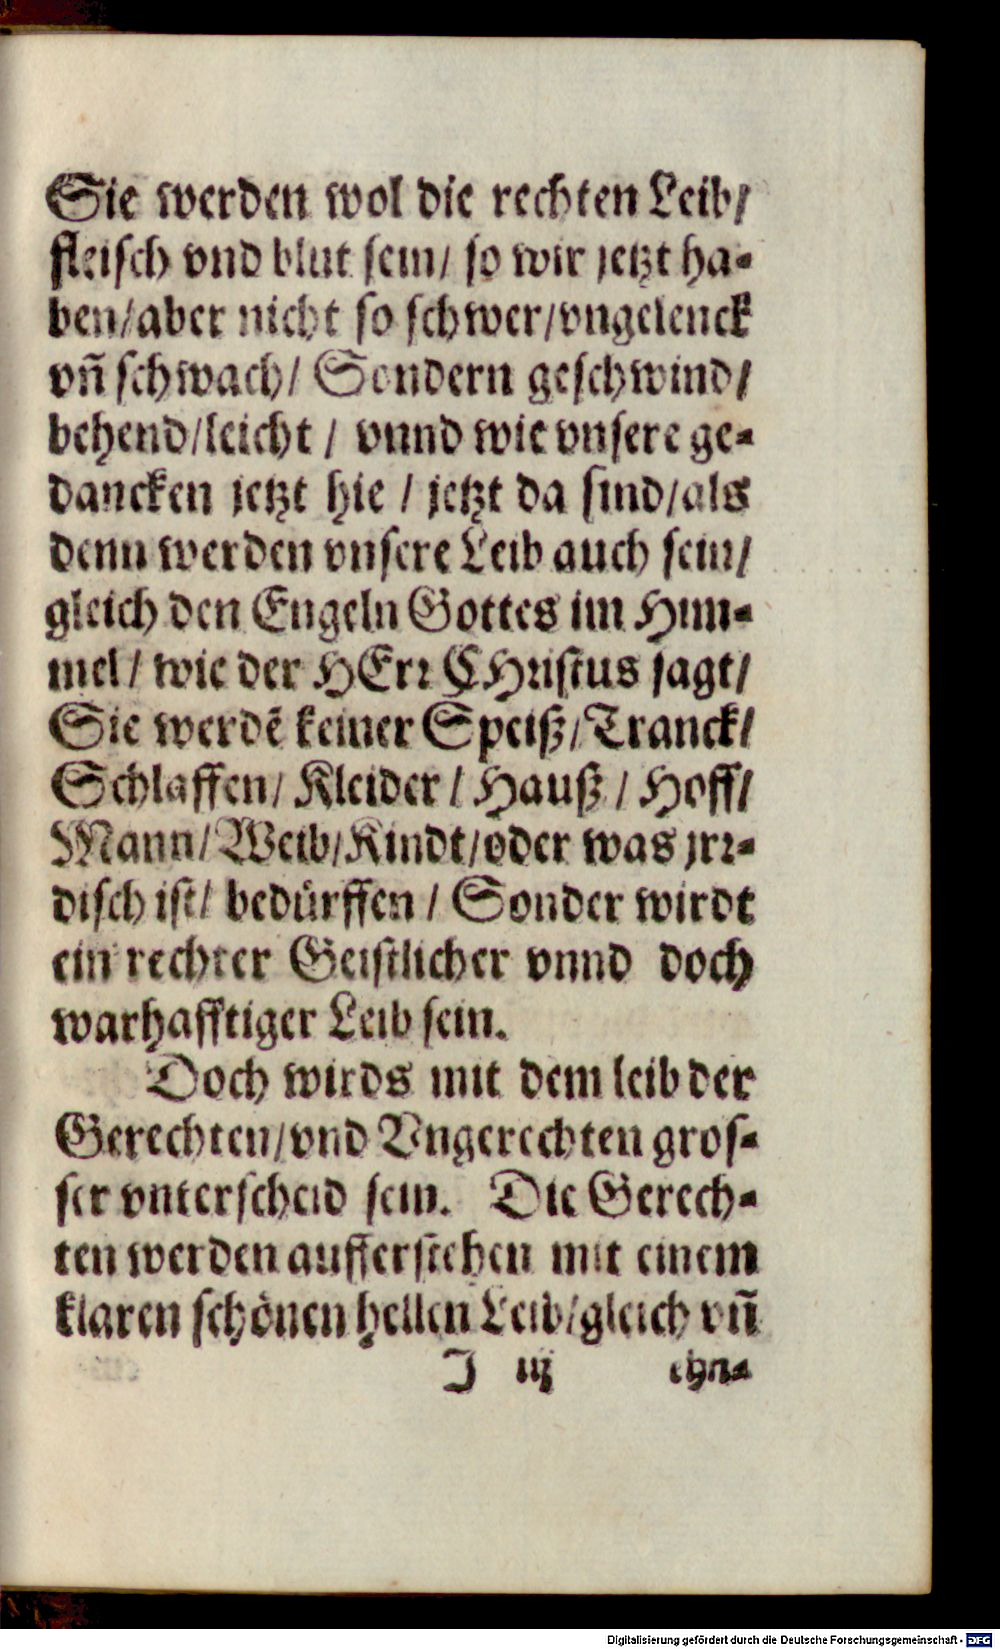 Sie werden wol die rechten Leib/
fleisch vnd blut sein/ so wir jetzt ha-
ben/aber nicht so schwer/vngelenck
vñ schwach/ Sondern geschwind/
behend/leicht / vnnd wie vnsere ge-
dancken jetzt hie / jetzt da sind/als
denn werden vnsere Leib auch sein/
gleich den Engeln Gottes im Him-
mel/ wie der HErr CHristus sagt/
Sie werdẽ keiner Speiß/Tranck/
Schlaffen/ Kleider / Hauß / Hoff/
Mann/Weib/Kindt/oder was jrr-
disch ist/ bedürffen / Sonder wirdt
ein rechter Geistlicher vnnd doch
warhafftiger Leib sein.
Doch wirds mit dem leib der
Gerechten/vnd Vngerechten gros-
ser vnterscheid sein. Die Gerech-
ten werden aufferstehen mit einem
klaren schönen hellen Leib/gleich vñ
J iij ehn-
Digitalisierung gefördert durch die Deutsche Forschungsgemeinschaft - DFG